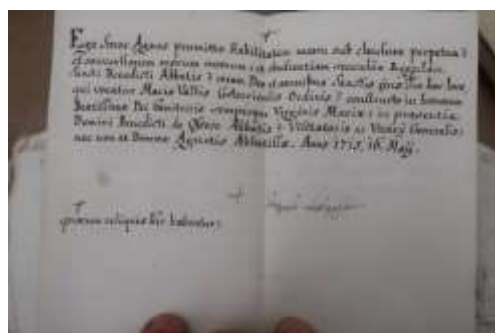 Ego Soror Agnes promitto stabilitatem meam sub clausura perpetua :
et conversionem morum meorum : et obedientiam secundum Regulam
Sancti Benedicti Abbatis : coram Deo et omnibus Sanctis In hoc loco
qui vocatur Mariae Vallis Cisterciensis Ordinis : constructo in honorem
Beatissimae Dei Genitricis semperque Virginis Mariae : in praesentia
Domini Benedicti Abbatis : Visitatoris ac Vicarij Generalis :
nec non et Dominae Agnetis Abbatissae. Anno 1715. 16. Maij.
quorum reliquiae hic habentur :